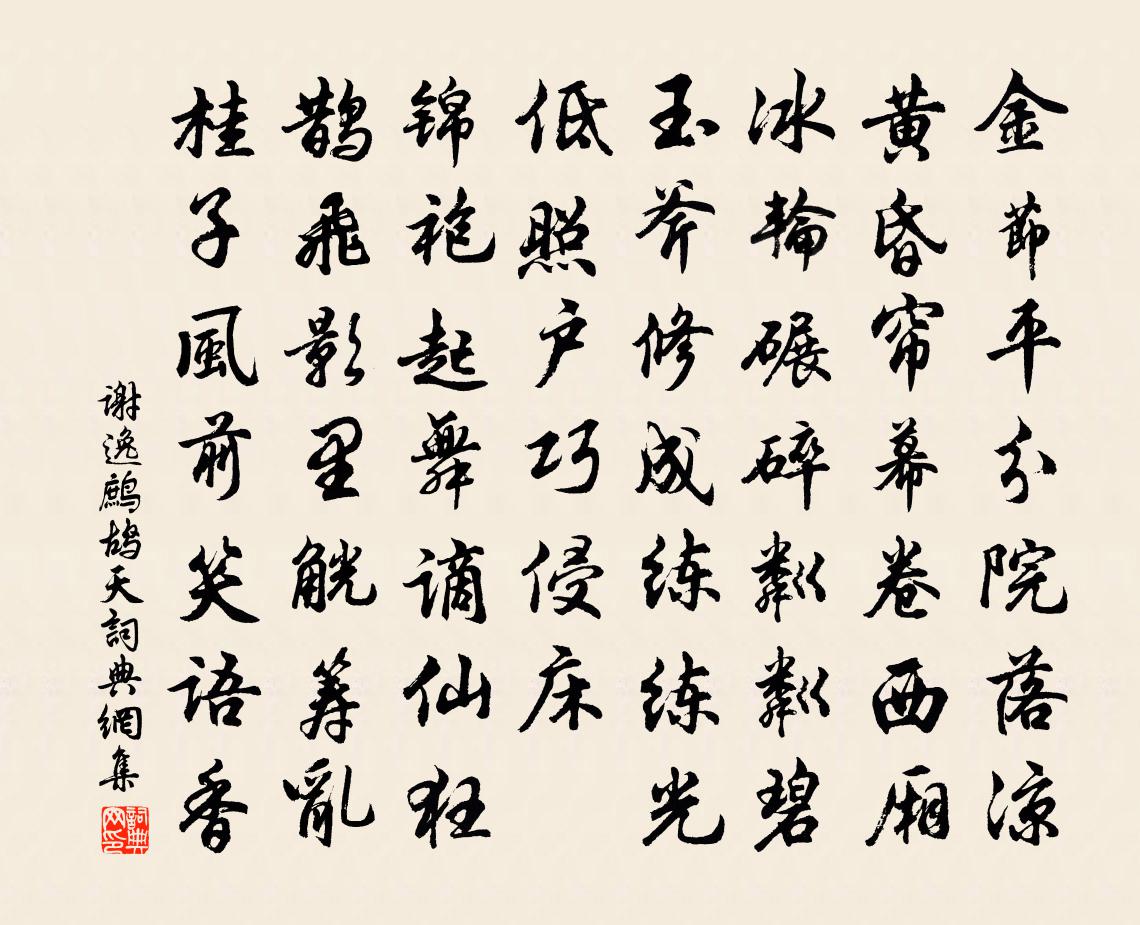 金節平分院落凉
黄昏帘幕卷西厢
冰輪碾碎粼粼碧
玉斧修成练练光
低照户巧侵床
锦袍起舞謫仙狂
鵲飛影里觥筹亂
桂子風前笑語香
謝逸鷓鴣天詞典網集
詞典網印